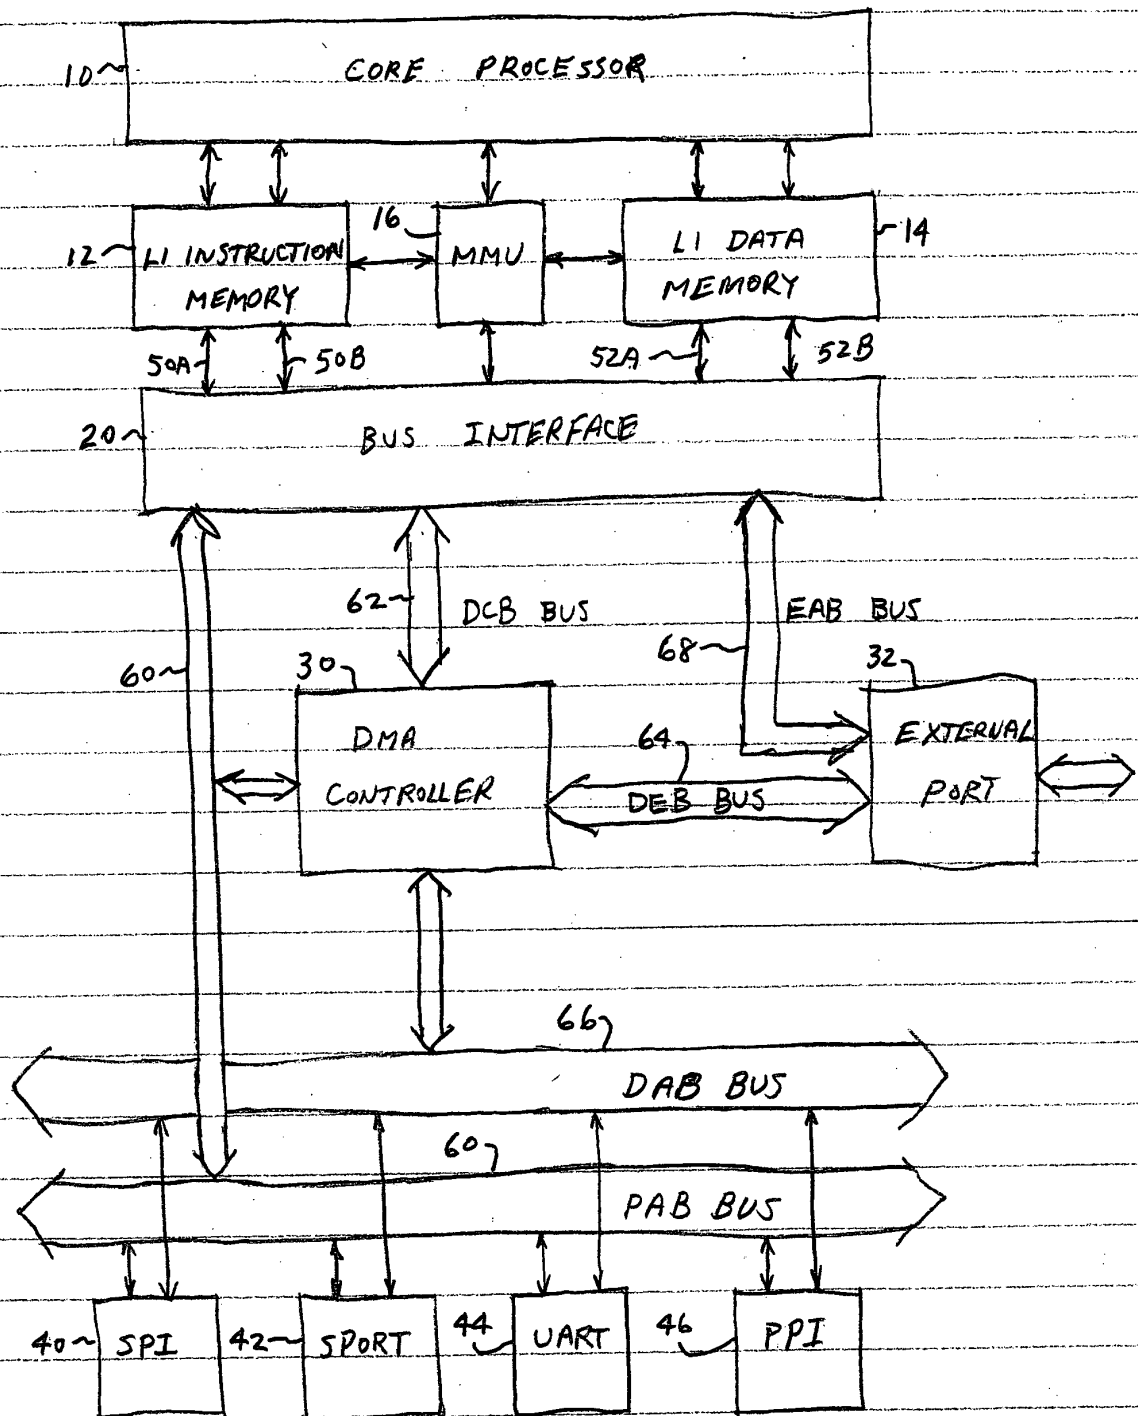 10
CORE PROCESSOR
12
L1 INSTRUCTION
MEMORY
16
MMU
L1 DATA
MEMORY
14
50A
50B
52A
52B
20
BUS INTERFACE
62
DCB BUS
EAB BUS
60
30
68
32
DMA
CONTROLLER
64
DEB BUS
EXTERNAL
PORT
66
DAB BUS
60
PAB BUS
40
SPI
42
SPORT
44
UART
46
PPI